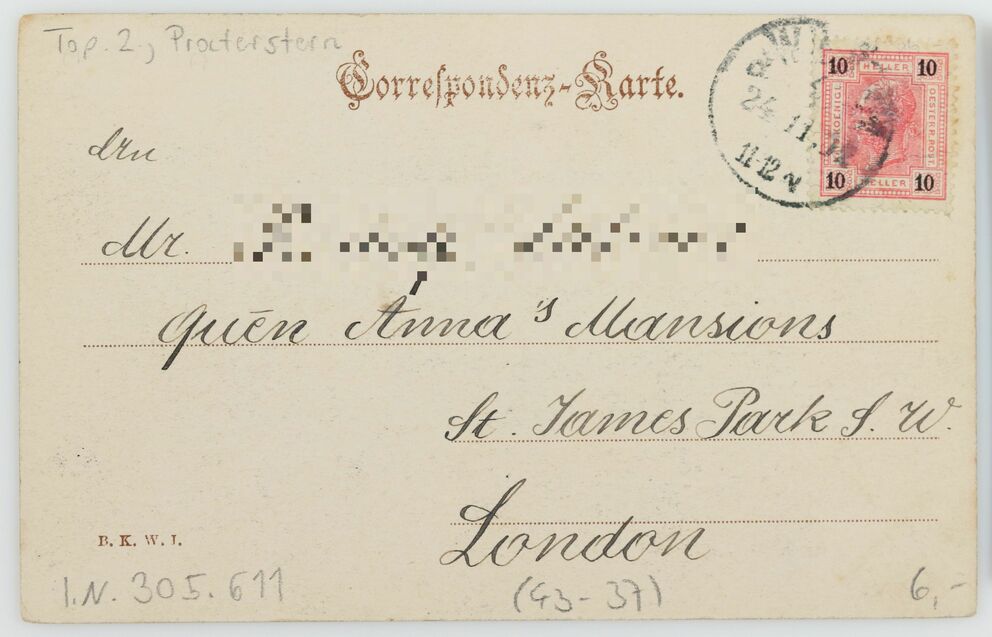 Top. 2., Praterstern
Correspondenz-Karte.
10 HELLER 10
KOENIGL. OESTERR. POST
10 HELLER 10
24 11
11-12 V
Mr.
Quēn Anna's Mansions
St. James Park S. W.
London
B. K. W. I.
I.N. 305.611
(43-37)
6,-